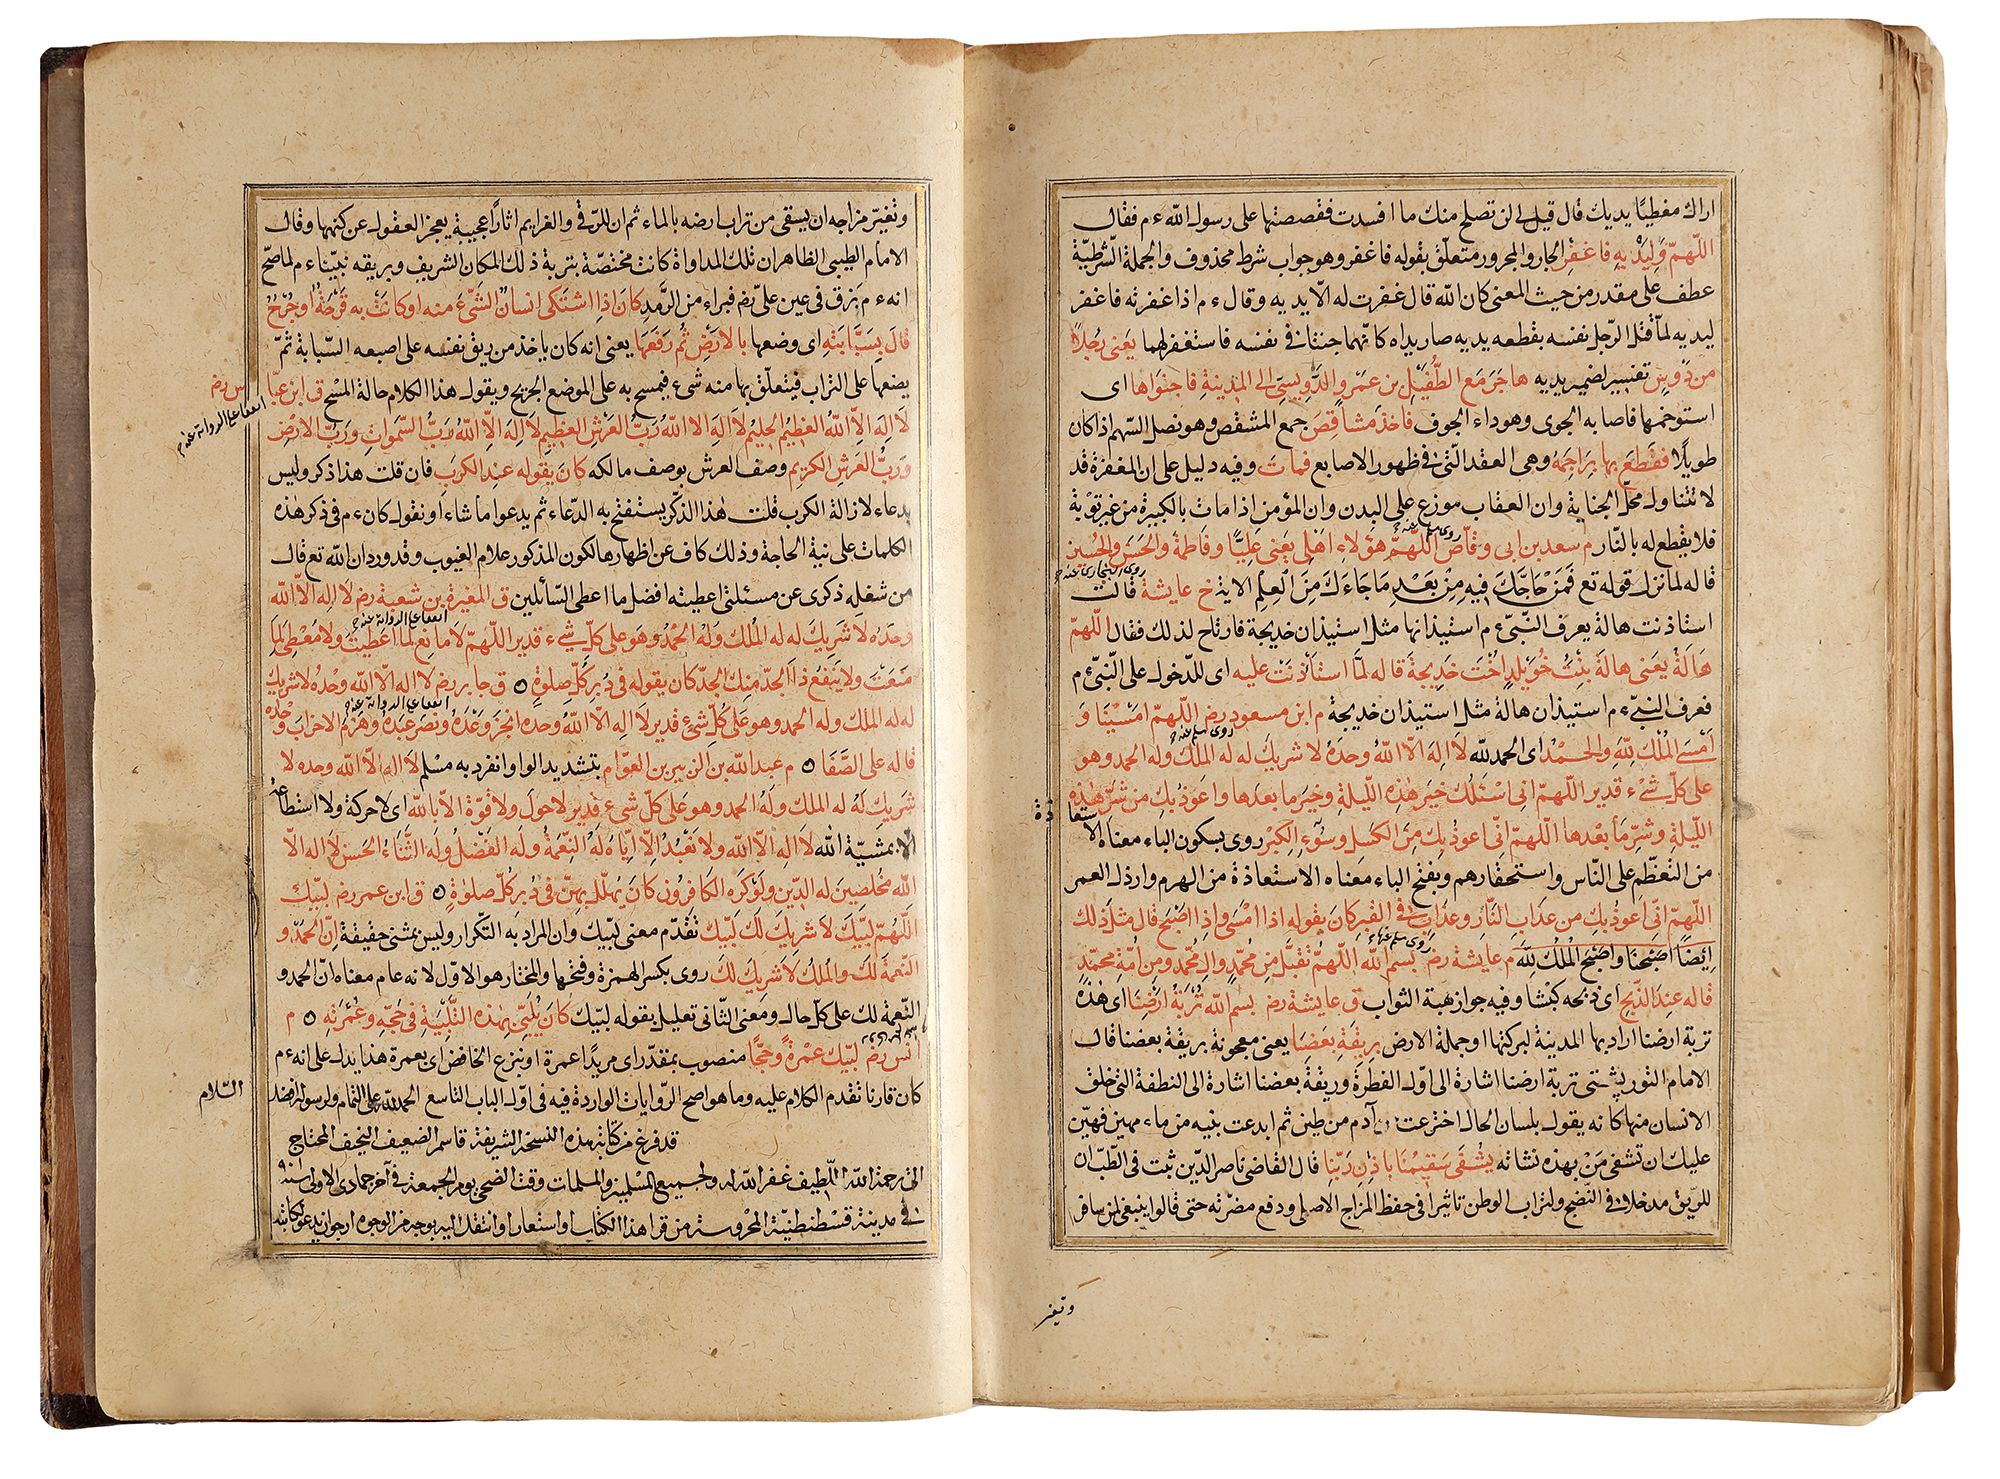 اراك مغطيًا يديك قال قيل لي لن تصلح منك ما افسدت فقصصتها على رسول الله ءم فقال
اللّهمّ وَلِيَدَيهِ فاغفِر الجار والمجرور متعلّق بقوله فاغفر وهو جواب شرط محذوف والجملة الشّرطيّة
عطف على مقدر من حيث المعنى كان الله قال غفرت له الّا يديه وقال ءم اذا غفرته فاغفر
ليديه لمّا قتل الرّجل نفسه بقطعه يديه صار يداه كانّهما جنتا في نفسه فاستغفر لهما يعنى رَجُلًا
من دَوسٍ تفسير لضمير يديه هاجَرَ مَعَ الطُّفَيْلِ بن عَمرو الدَّوسىّ الى المدينةِ فاجتَوَاها اى
استوخمها فاصابه الجوى وهو داء الجوف فَاخَذَ مَشاقِصَ جمع المشقص وهو نصل السّهم اذا كان
طويلًا فقَطَعَ بها بَراجِمَهُ وهى العقد الّتى في ظهور الاصابع فماتَ وفيه دليل على ان المغفرة قد
لا تتناول محلّ الجناية وان العقاب موزع على البدن وان المؤمن اذا مات بالكبيرة من غير توبة
فلا يقطع له بالنّار م سعد بن ابى وقّاص اللّهمّ هَؤلاءِ اَهلى يَعنى عَلِيًّا وفَاطمةَ والحَسَنَ والحُسينَ
روى مسلم عنه
قاله لما نزل قوله تع فَمَنْ حَاجَّكَ فِيهِ مِنْ بَعْدِ مَا جَاءَكَ مِنَ الْعِلمِ الاية خ عايشة قالت
روى البخارى عنه
استاذنت هالة يعرف النّبىّ ءم استيذانها مثل استيذان خديجة فارتاح لذلك فقال اللّهمّ
هَالَةَ يعنى هالةَ بِنْتَ خُوَيْلِدٍ اُخْتَ خَدِيجَةَ قاله لمّا استَأذنَتْ عليه اى للدخول على النّبىّ ءم
فعرف النّبىّ ءم استيذان هالة مثل استيذان خديجة م ابن مسعود رض اللّهمّ اَمْسَيْنَا وَ
روى مسلم عنه
اَمْسَى المُلْكُ لِلّهِ والحَمْدُ اى الحمد للّه لَا اِلهَ الّا اللّهُ وحدَهُ لا شريكَ له له الملك وله الحمد وهو
على كلّ شىْء قدير اللّهمّ انى اَسْئَلُكَ خَيرَ هذِهِ اللّيلةِ وخيرَ ما بعدها واعوذ بك من شرّ هذِه
اللّيلةِ وشرّ ما بَعْدها اللّهمّ انّى اعوذ بك مِنَ الكَسَلِ وسُوءِ الكِبْرِ روى بسكون الباء معناه الاستعاذة
من التعظّم على النّاس واستحقارهم وبفتح الباء معناه الاستعاذة من الهرم وارذل العمر
اللّهمّ انّى اَعوذُ بك من عذاب النّار وعذابٍ في القبرِ كان يقوله اذا امْسَى واذا اصْبَحَ قال مثل ذلك
اَيْضًا اَصْبَحْنَا واَصْبَحَ المُلْكُ لِلّهِ م عايشة رض بسم اللّه اللّهمّ تَقَبَّل مِنْ مُحمّدٍ وآلِ مُحمّدٍ ومن اُمَّةِ محمّدٍ
روى مسلم عنها
قاله عِندَ الذّبحِ اى ذبحه كبشا وفيه جواز هبة الثواب ق عايشة رض بسم الله تُرْبَةُ اَرْضِنا اى هذهٖ
تربة ارضنا اراد بها المدينة لبركتها او جملة الارض بِريقَةِ بَعضِنا يعنى معجونة بريقة بعضنا قال
الامام التّوربِشتى تربة ارضنا اشارة الى اوّل الفطرة وريقة بعضنا اشارة الى النطفة التى خلق
الانسان منها كانه يقول بلسان الحال اخترعت آدم من طين ثم ابدعت بنيه من ماء مهين فهيّن
عليك ان تشفى مَنْ بهذه نشاته يُشْفَى سَقِيمُنَا بِاذْنِ رَبِّنا قال القاضى ناصر الدّين ثبت في الطّبّ ان
للرّيق مدخلًا في النّضج ولتراب الوطن تاثيرا في حفظ المزاج الاصلى ودفع مضرّته حتى قالوا ينبغى لمن سافر
وتغير
وتغيّر مزاجه ان يسقى من تراب ارضه بالماء ثم ان للرّقى والعزايم اثارًا عجيبة يعجز العقول عن كنهها وقال
الامام الطيبى الظاهر ان تلك المداواة كانت مختصّة بتربة ذلك المكان الشريف وبريقه نبيّنا ءم لما صحّ
انه ءم بَزَق في عين علىّ رض فبراء من الرّمد كان اذا اشتكى انسانٌ الشّىْءَ منه او كانَتْ به قَرْحَةٌ او جُرْحٌ
قالَ بِسَبَّابَتِهِ اى وضعها بالارْضِ ثُم رَفَعَها يعنى انه كان ياخذ من ريق نفسه على اصبعه السّبابة ثمّ
يضعها على التراب فيتعلّق بها منه شىء فيمسح به على الموضع الجريح ويقول هذا الكلام حالة المسْح ق ابن عبّاس رض
اتفقا على الرواية عنه
لَا اِلهَ الّا اللّهُ العَظيمُ الحليمُ لَا اِلهَ الّا اللّهُ رَبُّ العَرْشِ العَظيمِ لَا اِلهَ الّا اللّهُ رَبُّ السّموات ورَبُّ الارْضِ
ورَبُّ العَرشِ الكَريمِ وصف العرش بوصف مالكه كانَ يقوله عند الكَربِ فان قلت هذا ذكر وليس
بدعاء لازالة الكرب قلت هذا الذّكر يستفتح به الدّعاء ثم يدعو ما شاء او نقول كان ءم في ذكر هذه
الكلمات على نية الحاجة وذلك كاف عن اظهارها لكون المذكور علّام الغيوب وقد ورد ان الله تع قال
من شغله ذكرى عن مسئلتى اعطيته افضل ما اعطى السّائلين ق المغيرة بن شعبة رض لا اله الّا اللّه
اتفقا على الرواية عنه
وحدَه لا شريك له له المُلك وله الحمدُ وهو على كلّ شىء قدير اللّهمّ لا مانع لما اَعْطَيْتَ ولا مُعْطِىَ لِمَا
مَنَعْتَ ولا يَنْفَعُ ذا الجدّ منك الجدّ كان يقوله في دُبرِ كُلّ صلوةٍ ق جابر رض لا اله الّا اللّه وحدَه لا شريك
اتفقا على الرواية عنه
له له الملك وله الحمد وهو على كُلّ شىْء قدير لا اله الّا اللّهُ وحده انجَزَ وَعْدَهُ ونَصَرَ عبدَهُ وهَزَمَ الاحزابَ وحْدَه
قاله على الصّفَا م عبد الله بن الزّبير بن العوّام بتشديد الواو انفرد به مسْلم لَا اله الّا اللّه وحده لا
شريكَ له له الملك وله الحمد وهو على كلّ شىء قدير لا حول ولا قوّة الّا باللّه اى لا حركة ولا استطاعة
الّا بمشيّة اللّه لا اله الّا اللّه ولا نَعْبُدُ اِلّا اِيّاهُ لَهُ النِّعمَةُ وله الفَضلُ وله الثّناءُ الحسَن لا اله الّا
اللّه مُخلِصِينَ له الدّين ولَو كَرِهَ الكافِرُون كان يُهَلّلُ بِهِنّ في دُبر كلّ صلوةٍ ق ابن عمر رض لبّيك
اللّهُمّ لَبّيكَ لا شَرِيكَ لَك لَبّيك تقدّم معنى لبّيك وان المراد به التّكرار وليس بمثنى حقيقة اِنّ الحَمدَ و
النّعمَةَ لكَ والمُلكَ لا شَرِيكَ لَكَ روى بكسر الهمزة وفتحها والمختار هو الاوّل لانه عام معناه انّ الحمد و
النّعمة لك على كلّ حال ومعنى الثّانى تعليل بقوله لبّيك كانَ يُلَبّى بِهذِه التَّلبِيَةِ في حَجّهِ وعُمْرَتِهِ م
انس رض لَبّيكَ عُمرةً وحَجًّا منصوب بمقدّر اى مريدًا عمرة او بنزع الخافض اى بعمرة هذا يدلّ على انه ءم
كان قارنا تقدم الكلام عليه وما هو اصح الرّوايات الواردة فيه في اوّل الباب التاسع الحمد للّه على التمام ولرسوله افضل
السّلام
قد فرغ من كتابة هذه النّسخة الشّريفة قاسم الضعيف النحيف المحتاج
الى رحمة اللّه اللّطيف غفر اللّه له ولجميع المسلمين والمسلمات وقت الضّحى يوم الجمعة في آخر جمادى الاولى
في مدينة قسطنطنيّة المحروسة من قرا هذا الكتاب واستعار او انتقل اليه بوجه من الوجوه ارجو ان يدعو لكاتبه